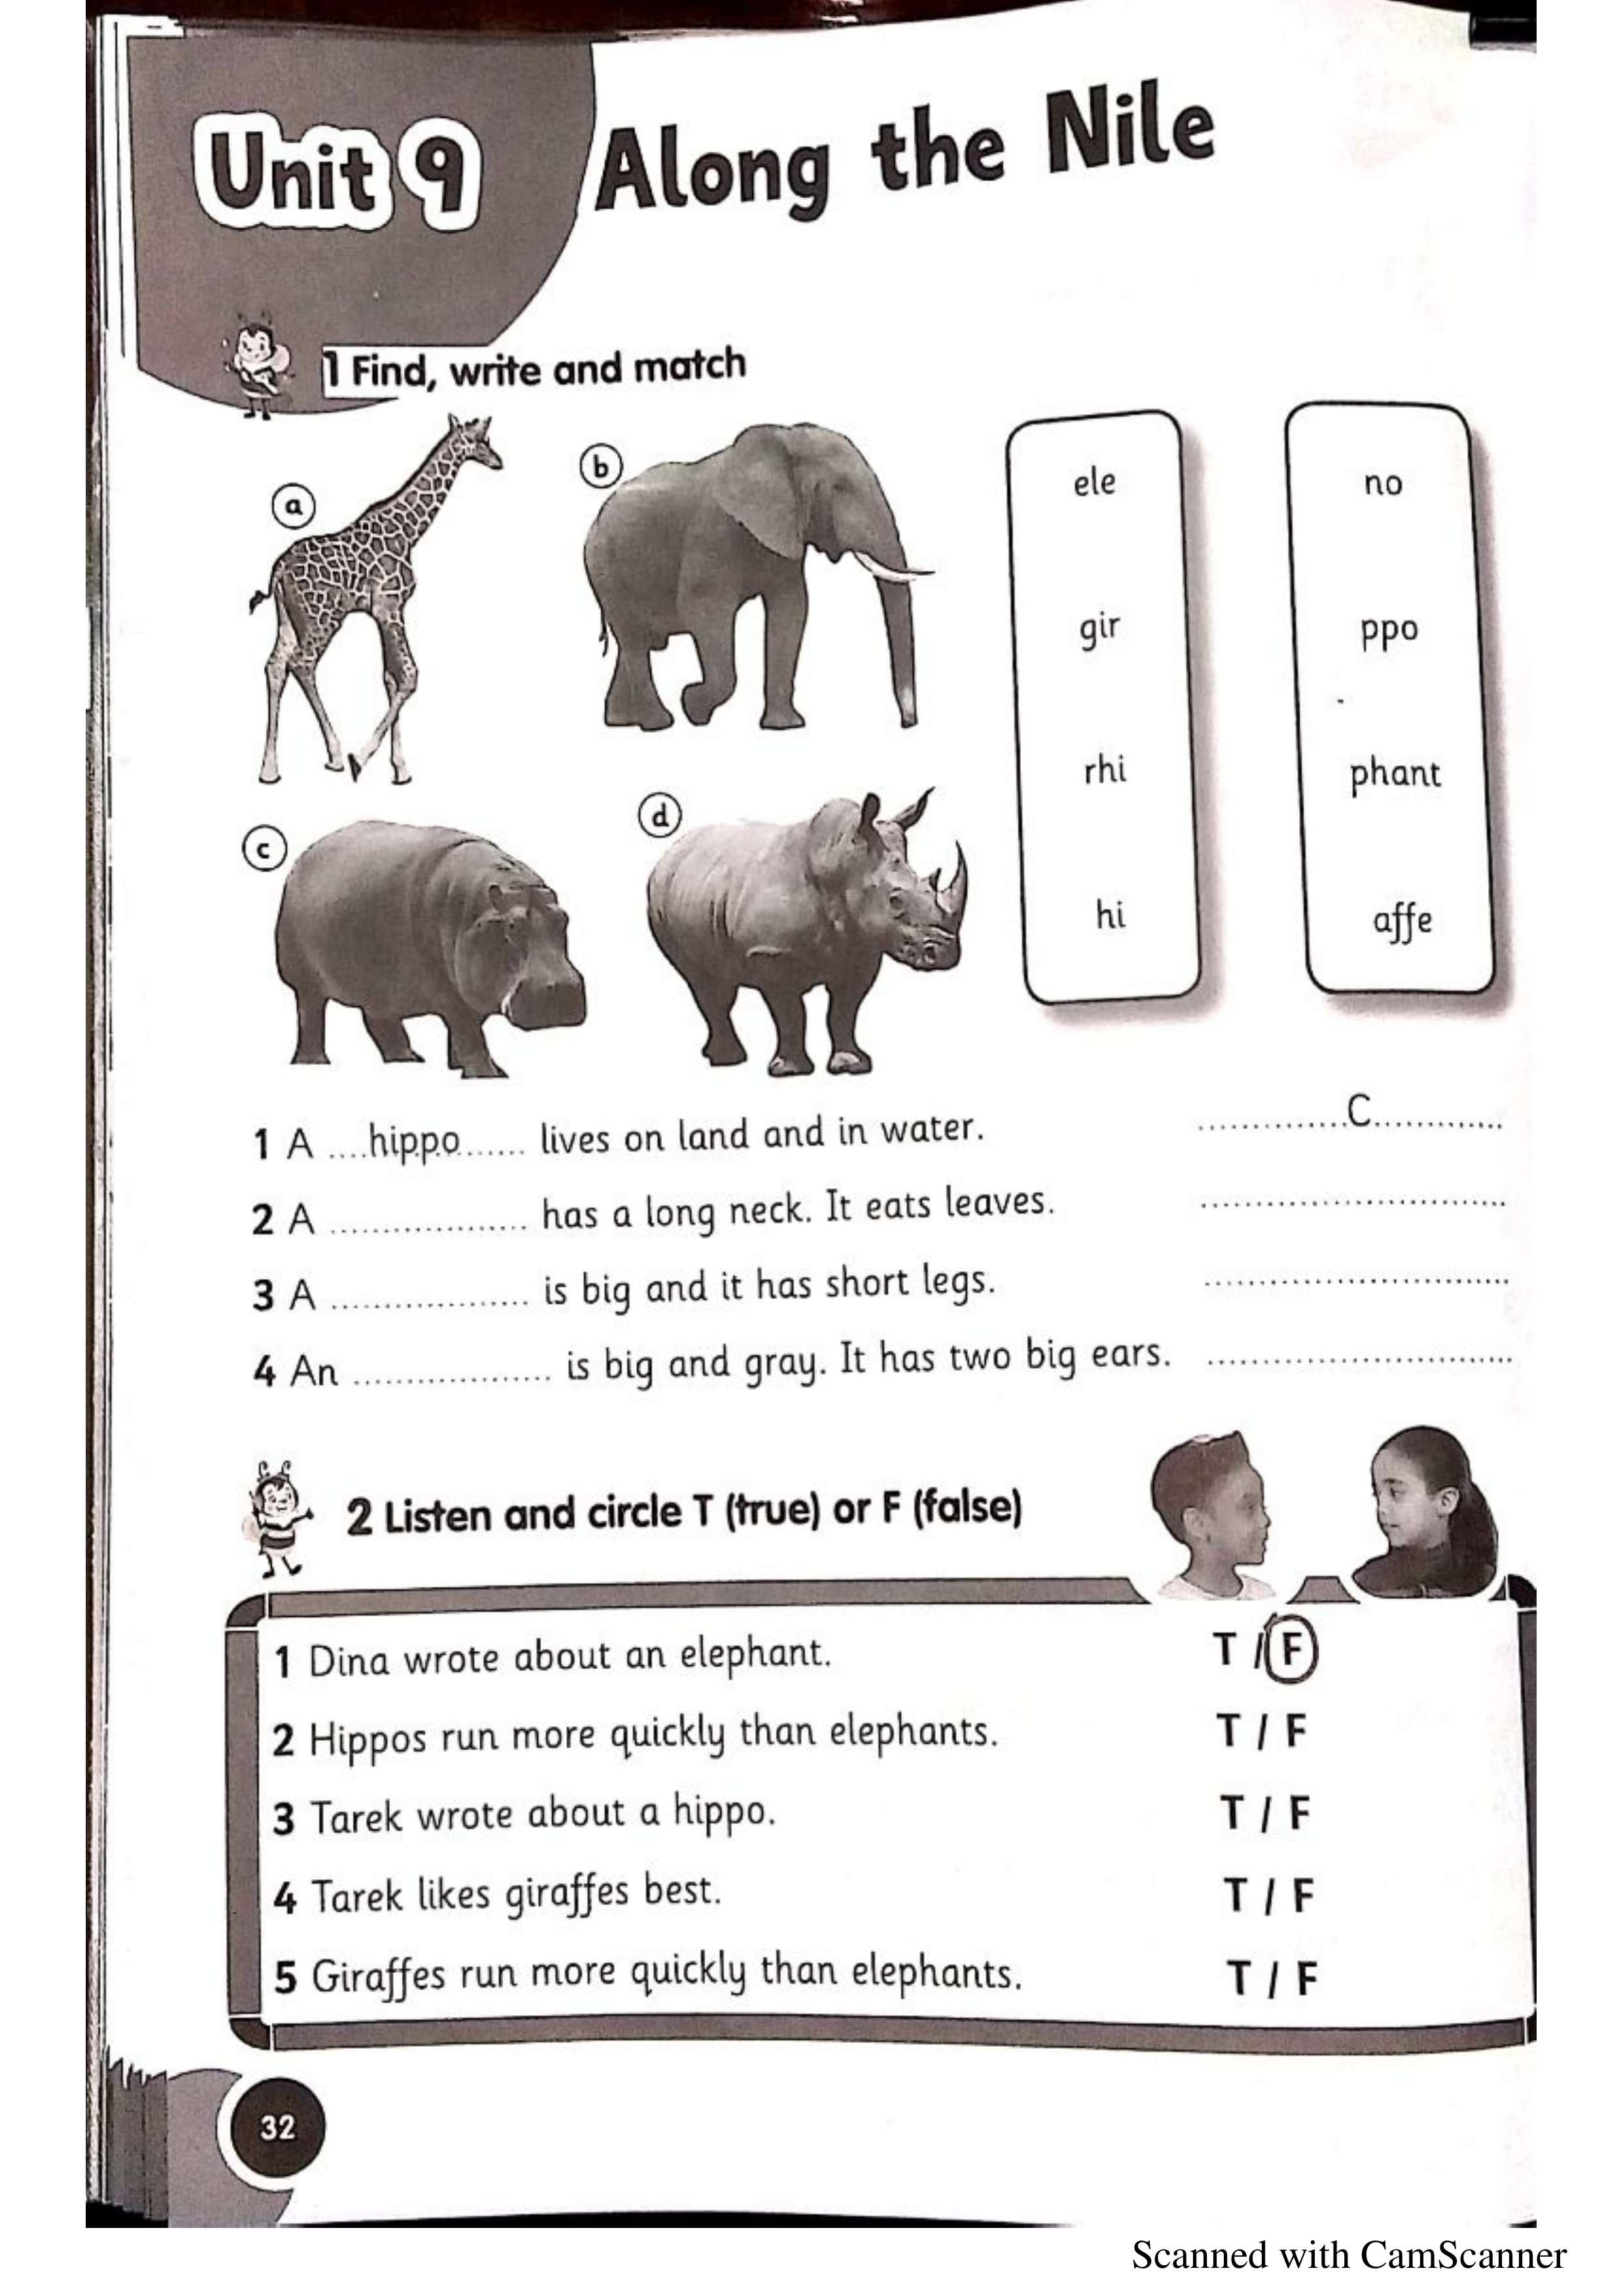 Unit 9 Along the Nile
1 Find, write and match
a
b
c
d
ele
gir
rhi
hi
no
ppo
phant
affe
1 A ....hippo...... lives on land and in water. ..............C.............
2 A .................. has a long neck. It eats leaves. ............................
3 A .................. is big and it has short legs. ............................
4 An .................. is big and gray. It has two big ears. ............................
2 Listen and circle T (true) or F (false)
1 Dina wrote about an elephant. T / F
2 Hippos run more quickly than elephants. T / F
3 Tarek wrote about a hippo. T / F
4 Tarek likes giraffes best. T / F
5 Giraffes run more quickly than elephants. T / F
32
Scanned with CamScanner